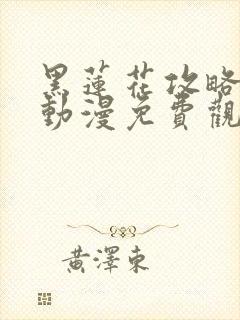 黑蓮花攻略
動漫免費觀
黃澤東